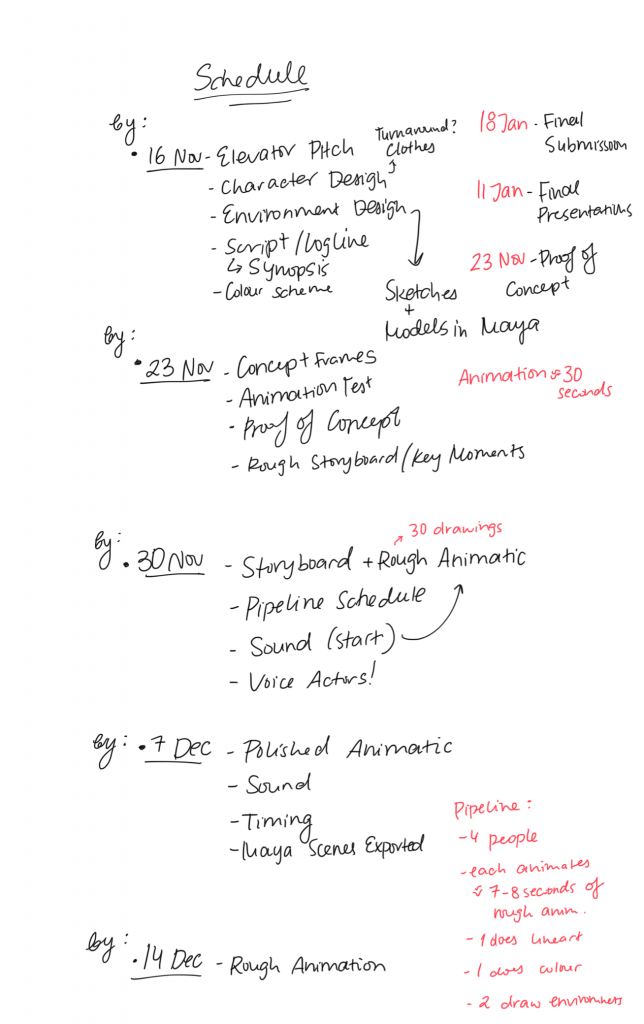 Schedule
by:
• 16 Nov - Elevator Pitch
- Character Design
Turnaround?
Clothes
- Environment Design
- Script/Logline
↳ Synopsis
- Colour scheme
Sketches
+
Models in Maya
18 Jan - Final
Submission
11 Jan - Final
Presentations
23 Nov - Proof of
Concept
by:
• 23 Nov - Concept Frames
- Animation Test
- Proof of Concept
- Rough Storyboard/Key Moments
Animation 30
seconds
by:
• 30 Nov - Storyboard + Rough Animatic
30 drawings
- Pipeline Schedule
- Sound (start)
- Voice Actors!
by: • 7 Dec - Polished Animatic
- Sound
- Timing
- Maya Scenes Exported
Pipeline:
- 4 people
- each animates
7-8 seconds of
rough anim.
- 1 does lineart
- 1 does colour
- 2 draw environments
by:
• 14 Dec - Rough Animation